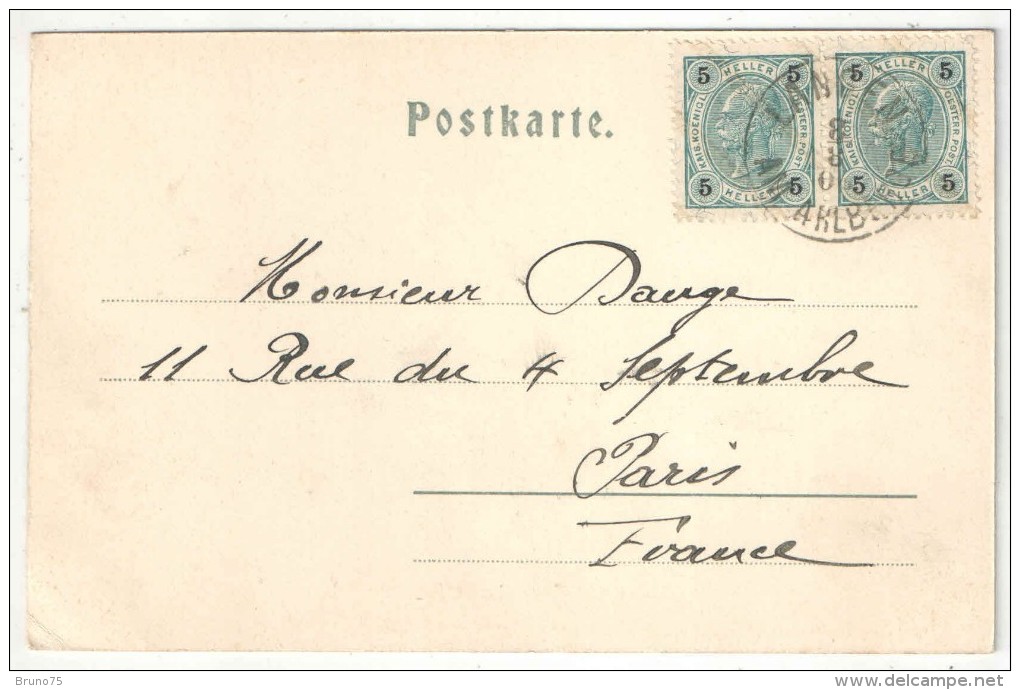 Postkarte.
5 HELLER 5
KAIS. KOENIGL. OESTERR. POST
5 HELLER 5
5 HELLER 5
KAIS. KOENIGL. OESTERR. POST
5 HELLER 5
LANGEN
AM ARLBERG
Monsieur Dauge
11 Rue du 4 Septembre
Paris
France
Bruno75
www.delcampe.net